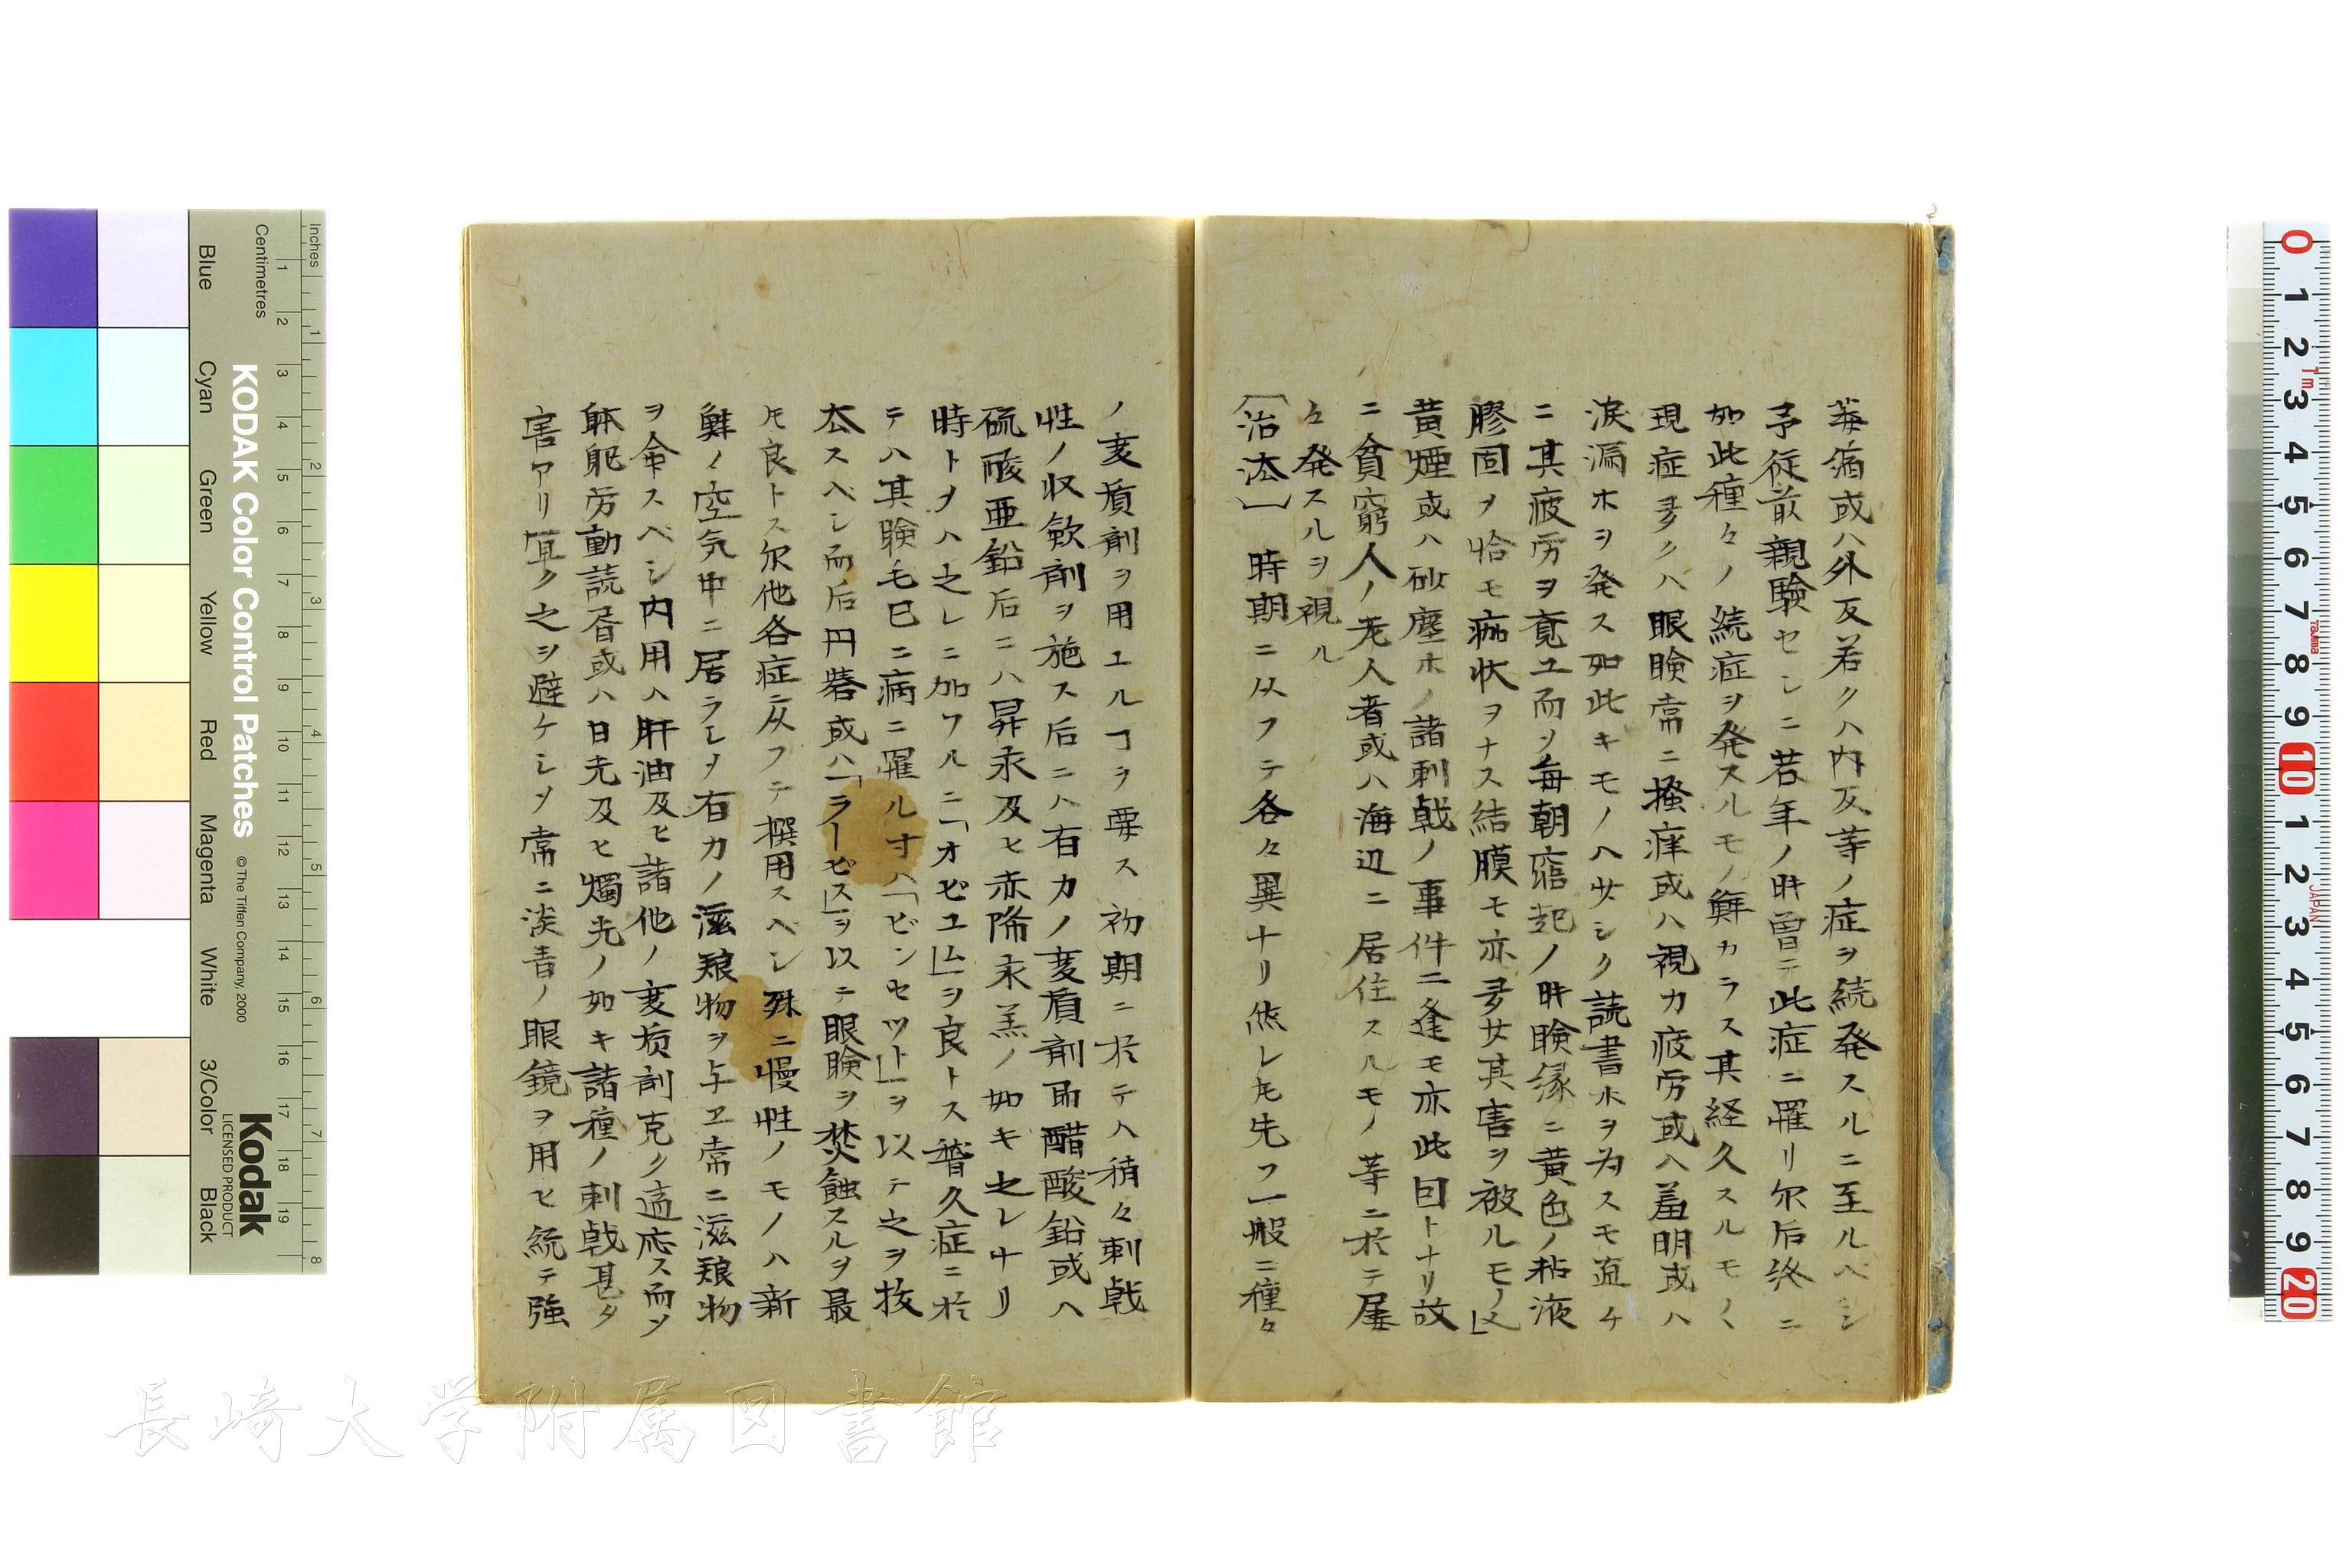 毒痛或ハ外反若クハ内反等ノ症ヲ続発スルニ至ルベシ
予従前親験セシニ若年ノ時曽テ此症ニ罹リ尓后終ニ
如此種々ノ続症ヲ発スルモノ鮮カラス其経久スルモノヽ
現症多クハ眼瞼常ニ掻痒或ハ視力疲労或ハ羞明或ハ
涙漏ホヲ発ス如此キモノハ少シク読書ホヲ為スモ直チ
ニ其疲労ヲ覚ユ而ソ毎朝寤起ノ時瞼縁ニ黄色ノ粘液
膠固ヲ恰モ痂状ヲナス結膜モ亦多少其害ヲ被ルモノ又
黄煙或ハ砂塵ホノ諸刺戟ノ事件ニ逢モ亦此因トナリ故
ニ貧窮人ノ老人者或ハ海辺ニ居住スルモノ等ニ於テ屡
々発スルヲ視ル
「治法」時期ニ从フテ各々異ナリ然レ𪜈先フ一般ニ種々
ノ変質剤ヲ用ユルヿヲ要ス初期ニ於テハ稍々刺戟
性ノ収歛剤ヲ施ス后ニハ有力ノ変質剤即醋酸鉛或ハ
硫酸亜鉛后ニハ昇汞及ヒ赤降汞羔ノ如キ之レナリ
時トヲハ之レニ加フルニ「オピユム」ヲ良トス瞥久症ニ於
テハ其睫毛已ニ病ニ罹ル寸ハ「ビンセツト」ヲ以テ之ヲ抜
去スベシ而后円礬或ハ「ラーピス」ヲ以テ眼瞼ヲ焚蝕スルヲ最
モ良トス尓他各症ニ从フテ撰用スベシ殊ニ慢性ノモノハ新
鮮ノ空気中ニ居ラシヲ有力ノ滋粮物ヲ与ヱ常ニ滋粮物
ヲ命スベシ内用ハ肝油及ヒ諸他ノ変質剤克ク適応ス而ソ
躰軀労動読書或ハ日光及ヒ燭光ノ如キ諸種ノ刺戟甚タ
害アリ宜ク之ヲ避ケシヲ常ニ淡青ノ眼鏡ヲ用ヒ統テ強
Inches
Centimetres
KODAK Color Control Patches
© The Tiffen Company, 2000
Kodak
LICENSED PRODUCT
Blue Cyan Green Yellow Red Magenta White 3/Color Black
1 2 3 4 5 6 7 8
1 2 3 4 5 6 7 8 9 10 11 12 13 14 15 16 17 18 19
0 1 2 3 4 5 6 7 8 9 10 1 2 3 4 5 6 7 8 9 20
JAPAN
長崎大学附属図書館